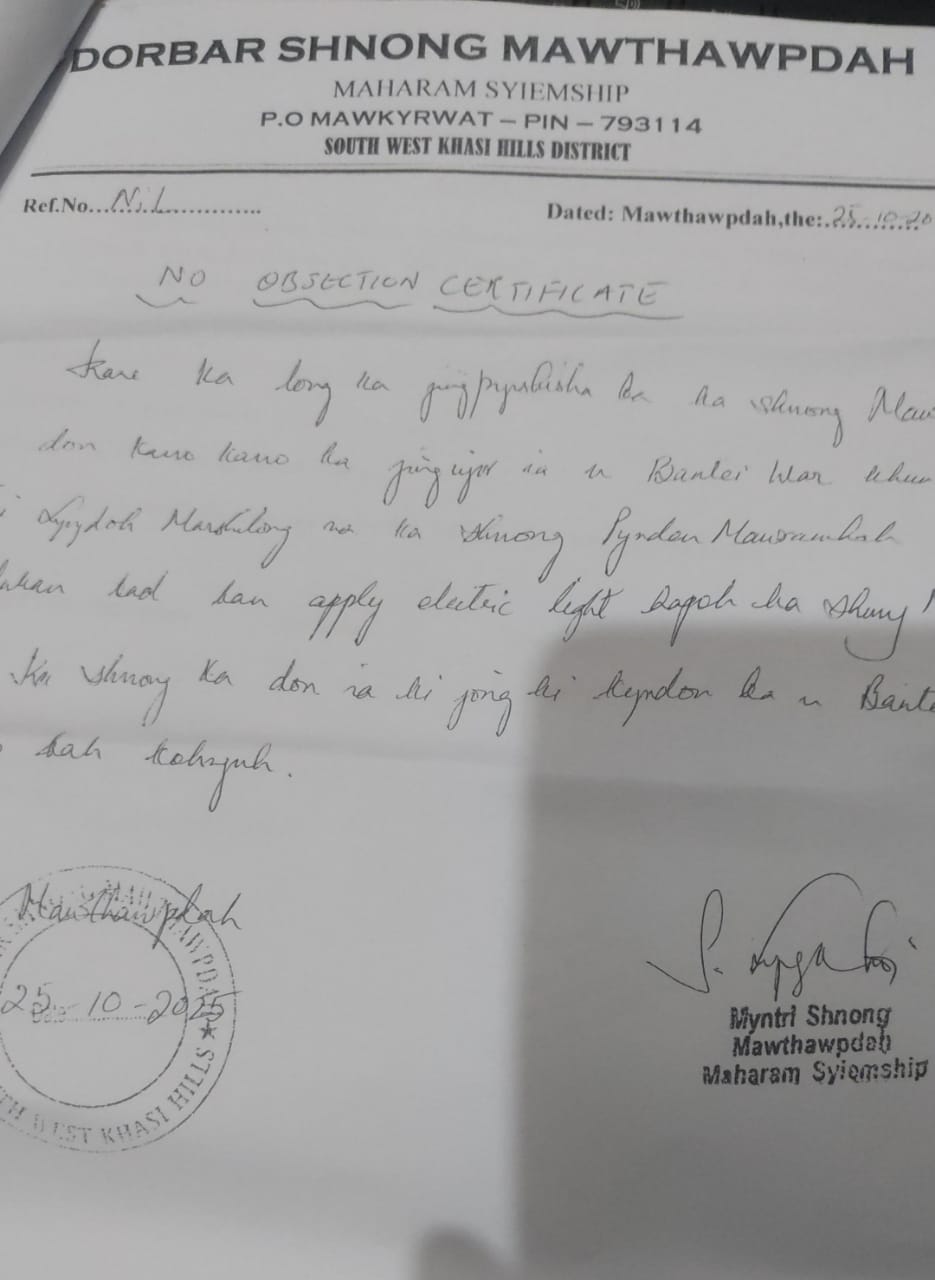 DORBAR SHNONG MAWTHAWPDAH
MAHARAM SYIEMSHIP
P.O MAWKYRWAT – PIN – 793114
SOUTH WEST KHASI HILLS DISTRICT
Ref.No...Nil.............
Dated: Mawthawpdah,the:.25-10-20
NO OBSECTION CERTIFICATE
Kane ka long ka jingpynbisha ba ka shnong Maw
don kano kano ka jingujor ia u Bantei War
Lyngdoh Marshilong na ka shnong Pynden
lad ban apply electric light ha
Ka shnong ka don ia ki jong ki kyndon ba u Bante
bah kohnguh.
Mawthawpdah
25-10-2025
Date
WEST KHASI HILLS ★
S.
Myntri Shnong
Mawthawpdah
Maharam Syiemship